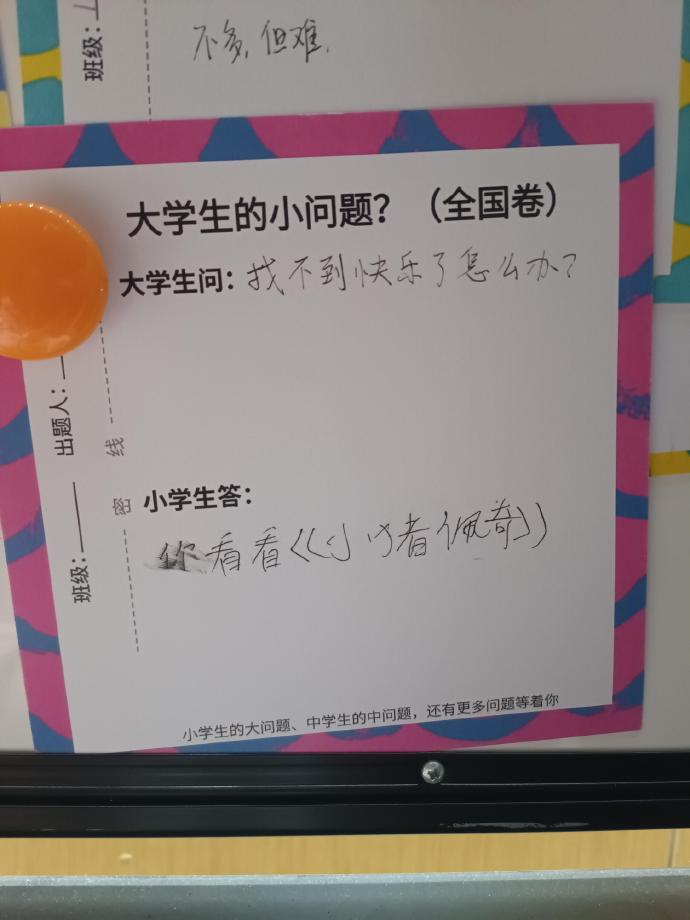 班级:
不多,但难.
大学生的小问题?（全国卷）
大学生问：找不到快乐了怎么办?
出题人:
线
密
班级:
小学生答：
你看看《小猪佩奇》
小学生的大问题、中学生的中问题，还有更多问题等着你